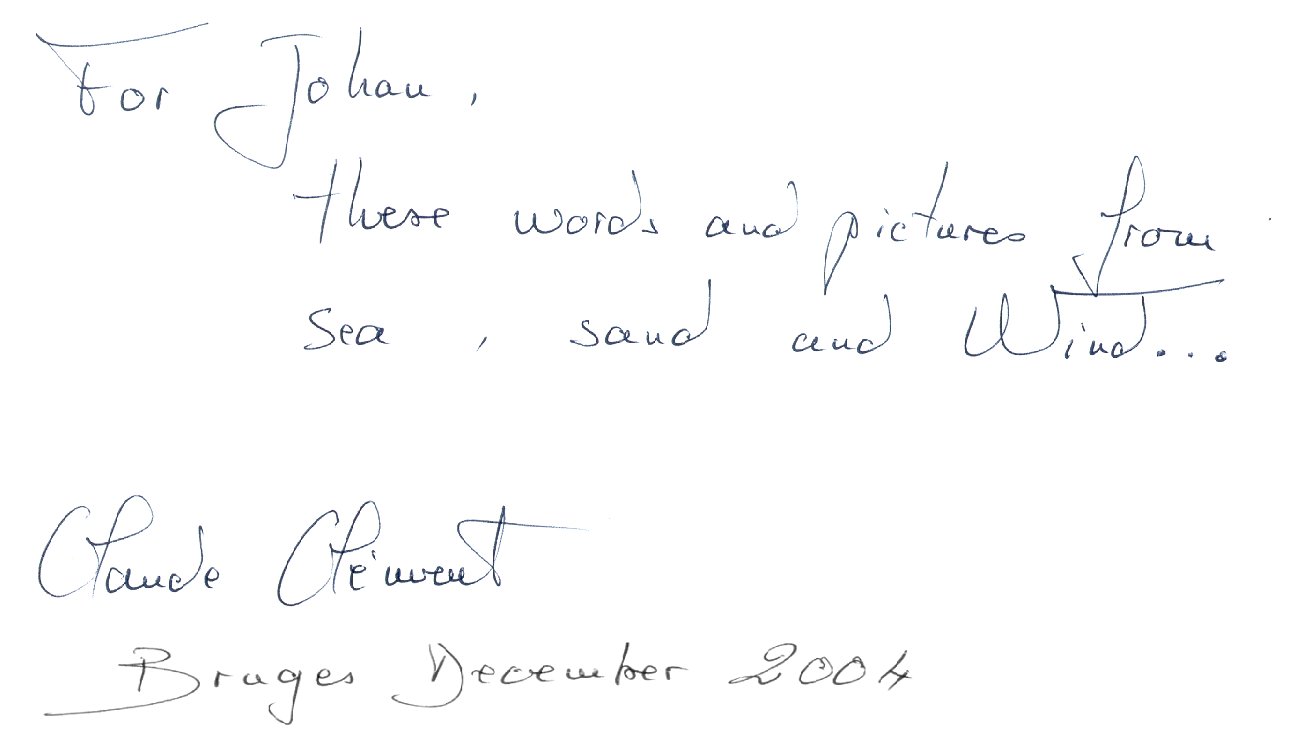 For Johan,
these words and pictures from
sea, sand and Wind...
Claude Clément
Bruges December 2004